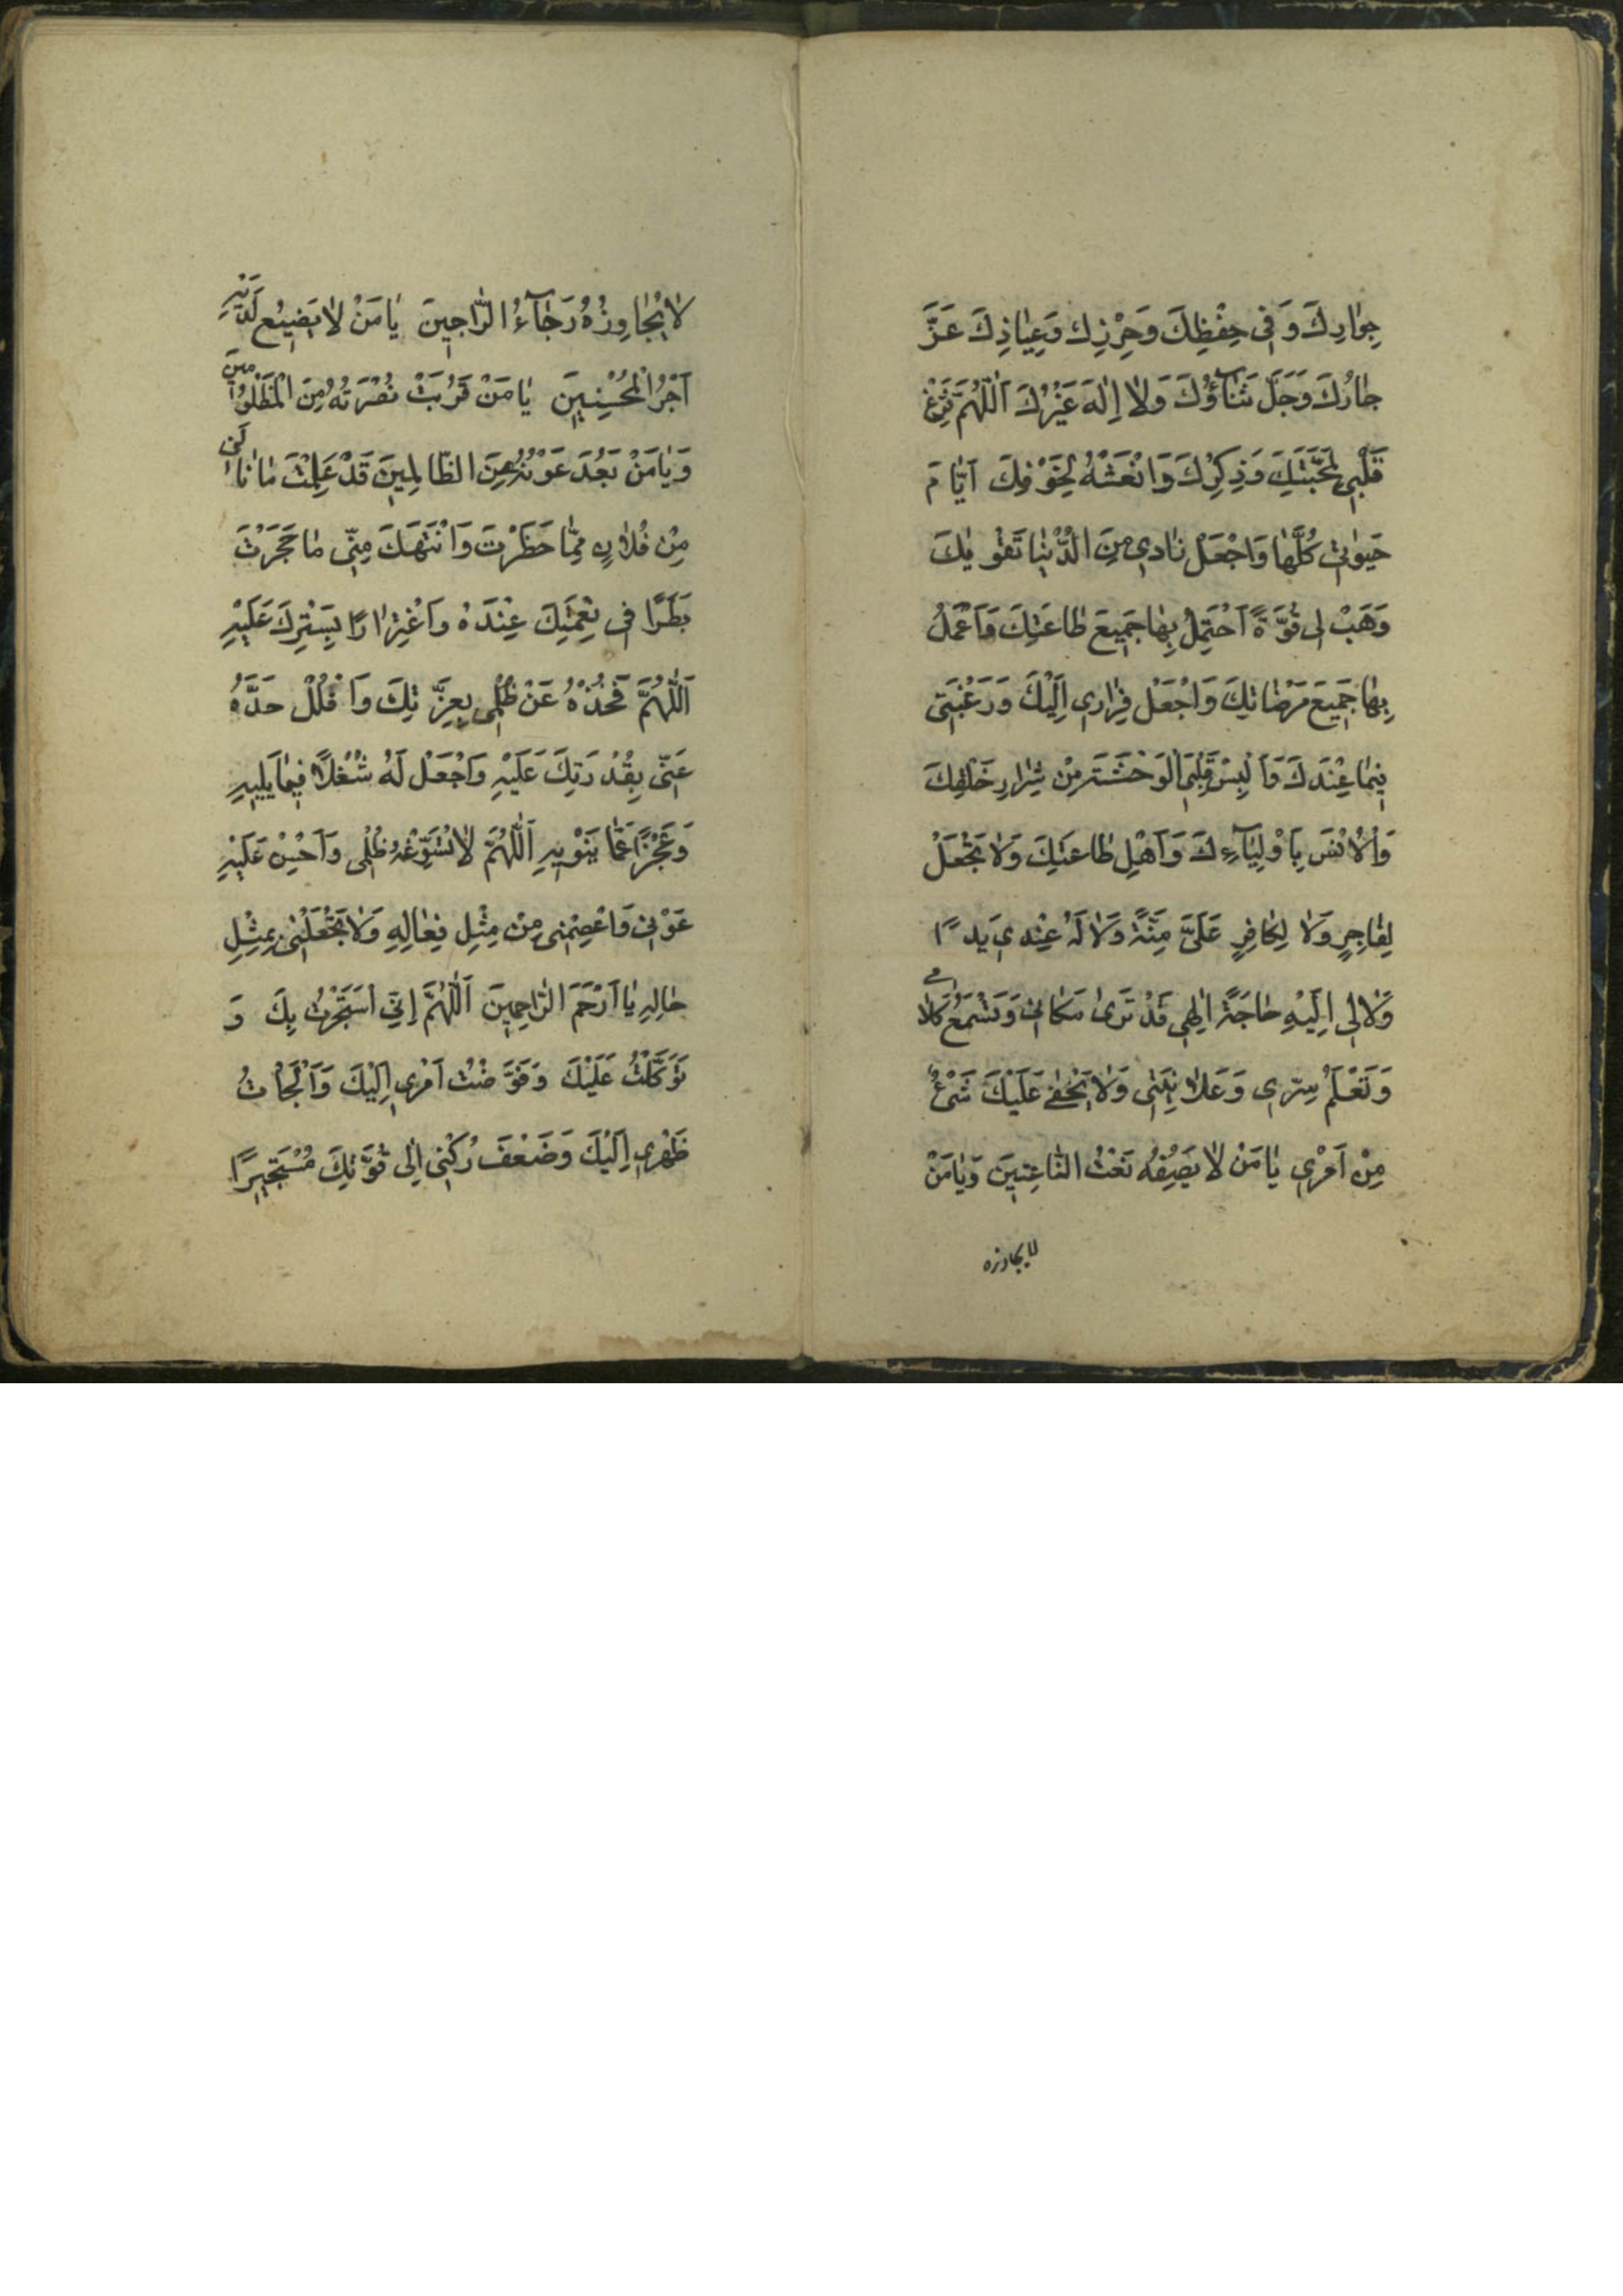 جِوٰارِكَ وَ فى حِفْظِكَ وَحِرْزِكَ وَعِيٰاذِكَ عَزَّ
جٰارُكَ وَجَلَّ ثَنٰآؤُكَ وَلٰا اِلٰهَ غَيْرُكَ اَللّٰهُمَّ فَرِّغْ
قَلْبى لِمَحَبَّتِكَ وَذِكْرِكَ وَانْعَشْهُ لِخَوْفِكَ اَيّٰامَ
حَيٰوتى كُلَّهٰا وَاجْعَلْ زٰادى مِنَ الدُّنْيٰا تَقْوٰيكَ
وَهَبْ لى قُوَّةً اَحْتَمِلُ بِهٰا جَميعَ طٰاعَتِكَ وَاَعْمَلُ
بِهٰا جَميعَ مَرْضٰاتِكَ وَاجْعَلْ فِرٰارى اِلَيْكَ وَرَغْبَتى
فيمٰا عِنْدَكَ وَاَلْبِسْ قَلْبِىَ الْوَحْشَةَ مِنْ شِرٰارِ خَلْقِكَ
وَالْاُنْسَ بِاَوْلِيٰآءِكَ وَاَهْلِ طٰاعَتِكَ وَلٰا تَجْعَلْ
لِفٰاجِرٍ وَلٰا لِكٰافِرٍ عَلَىَّ مِنَّةً وَلٰا لَهُ عِنْدى يَدًا
وَلٰا لى اِلَيْهِ حٰاجَةً اِلٰهى قَدْ تَرىٰ مَكٰانى وَتَسْمَعُ كَلٰامى
وَتَعْلَمُ سِرّى وَعَلٰانِيَتى وَلٰا يَخْفىٰ عَلَيْكَ شَىْءٌ
مِنْ اَمْرى يٰا مَنْ لٰا يَصِفُهُ نَعْتُ النّٰاعِتينَ وَيٰا مَنْ
لا يجاوزه
لٰا يُجٰاوِزُهُ رَجٰآءُ الرّٰاجينَ يٰا مَنْ لٰا يَضيعُ لَدَيْهِ
اَجْرُ الْمُحْسِنينَ يٰا مَنْ قَرُبَتْ نُصْرَتُهُ مِنَ الْمَظْلُومينَ
وَيٰا مَنْ بَعُدَ عَوْنُهُ عَنِ الظّٰالِمينَ قَدْ عَلِمْتَ مٰا نٰالَنى
مِنْ فُلٰانٍ مِمّٰا حَظَرْتَ وَانْتَهَكَ مِنّى مٰا حَجَرْتَ
بَطَرًا فى نِعْمَتِكَ عِنْدَهُ وَاغْتِرٰارًا بِسِتْرِكَ عَلَيْهِ
اَللّٰهُمَّ فَخُذْهُ عَنْ ظُلْمى بِعِزَّتِكَ وَافْلُلْ حَدَّهُ
عَنّى بِقُدْرَتِكَ عَلَيْهِ وَاجْعَلْ لَهُ شُغْلًا فيمٰا يَليهِ
وَعَجْزًا عَمّٰا يَنْويهِ اَللّٰهُمَّ لٰا تُسَوِّغْهُ ظُلْمى وَاَحْسِنْ عَلَيْهِ
عَوْنى وَاعْصِمْنى مِنْ مِثْلِ فِعٰالِهِ وَلٰا تَجْعَلْنى بِمِثْلِ
حٰالِهِ يٰا اَرْحَمَ الرّٰاحِمينَ اَللّٰهُمَّ اِنّى اسْتَجَرْتُ بِكَ وَ
تَوَكَّلْتُ عَلَيْكَ وَفَوَّضْتُ اَمْرى اِلَيْكَ وَاَلْجَأْتُ
ظَهْرى اِلَيْكَ وَضَعْفَ رُكْنى اِلىٰ قُوَّتِكَ مُسْتَجيرًا